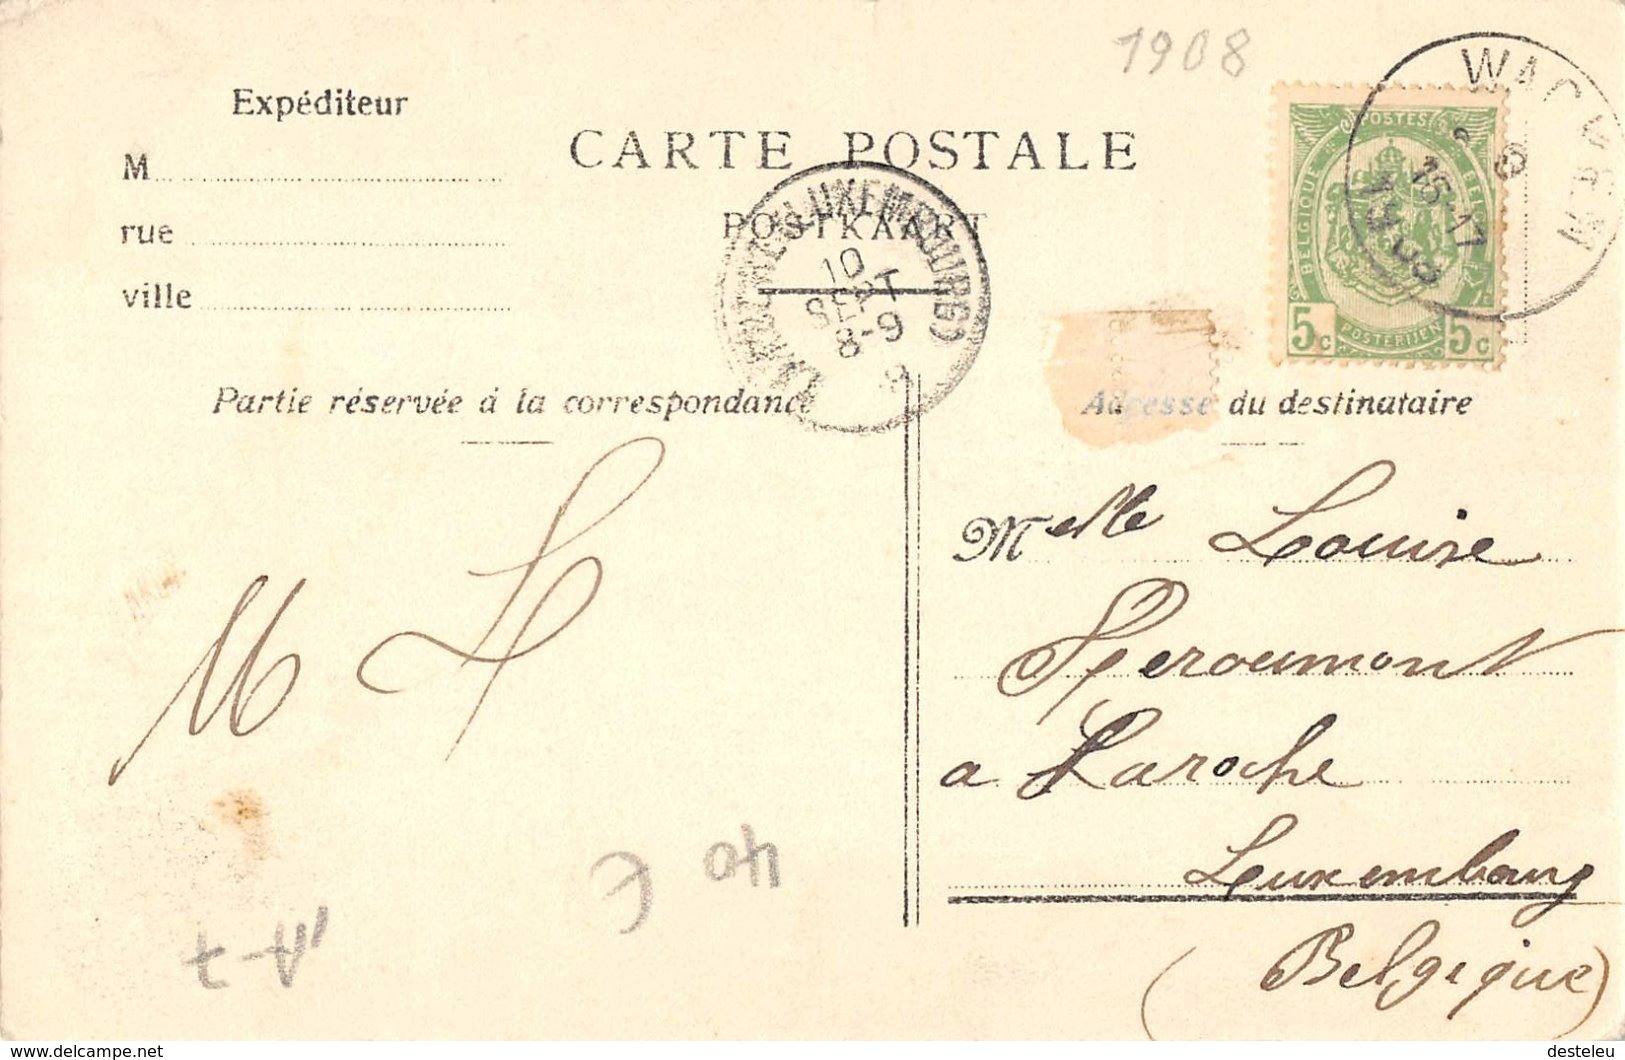 1908
Expéditeur
M
rue
ville
CARTE POSTALE
POSTKAART
POSTES
BELGIQUE
BELGIE
5c
POSTERIJEN
5c
16-17
1908
(LUXEMBOURG)
10
SEPT
8-9
Partie réservée à la correspondance
Adresse du destinataire
M L
Melle Louise
a Laroche
Luxembourg
(Belgique)
40
www.delcampe.net
desteleu